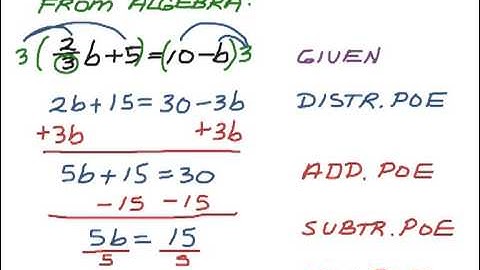 FROM ALGEBRA:
3(2/3 b+5)=(10-b)3 GIVEN
2b+15=30-3b DISTR. POE
+3b +3b
5b+15=30 ADD. POE
-15 -15 SUBTR. POE
5b = 15
5 5